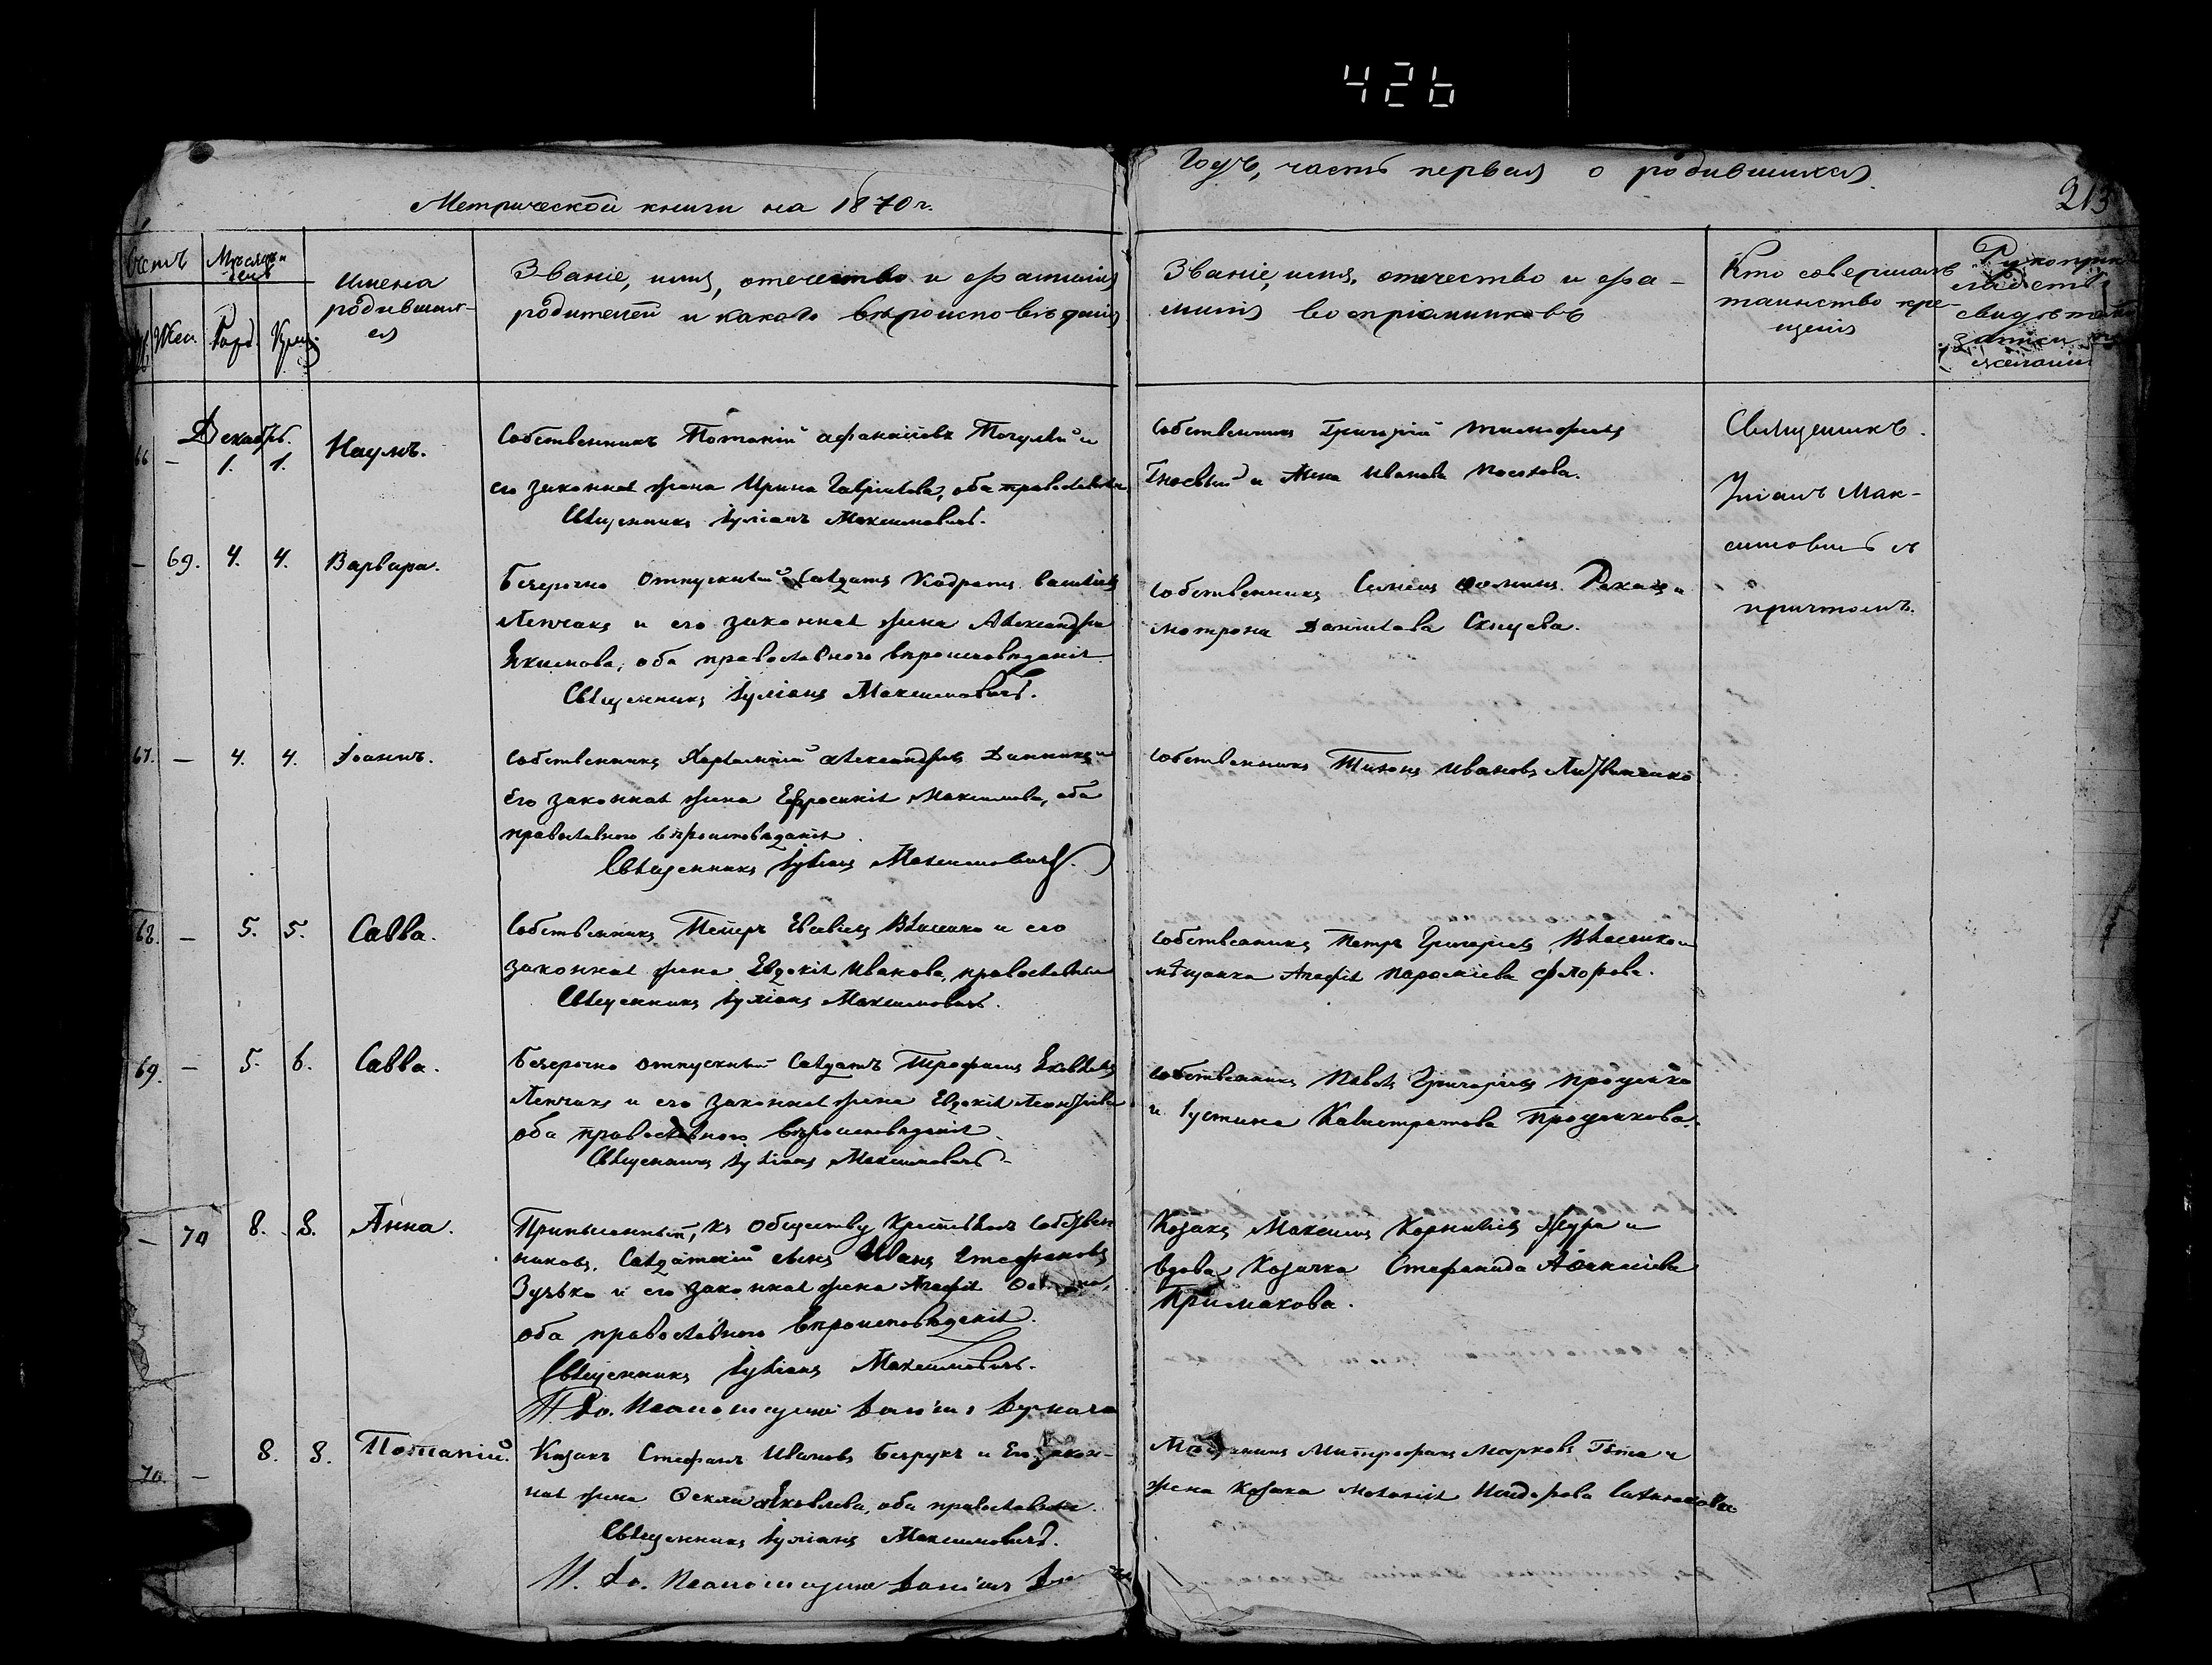 426
Метрической книги на 1870 г.
Годъ, часть первая о родившихся
213
Счетъ
Мѣсяцъ и день
Жен.
Рожд.
Крещ.
Имена
родивших-
ся
Званіе, имя, отчество и фамилія
родителей и какого вѣроисповѣданія
Званіе, имя, отчество и фа-
милія воспріемниковъ
Кто совершалъ
таинство кре-
щенія
Рукоприк
ладство
свидѣтелей
записи по
желанію
Декабрь.
66 — 1. 1. Наумъ.
Собственникъ Потапій и
его законная жена Ирина Гавріилова, оба православные
Священникъ Іуліанъ Максимовичъ.
Собственникъ Григорій Тимофеевъ
Гноевый и Анна Иванова Носкова.
Священникъ
Іуліанъ Мак-
симовичъ съ
причтомъ.
— 69. 4. 4. Варвара.
Безсрочно отпускный Солдатъ Кодратъ
Лепчакъ и его законная жена Александра
Екимова, оба православнаго вѣроисповѣданія.
Священникъ Іуліанъ Максимовичъ.
Собственникъ Симеонъ Фоминъ и
Мотрона Даніилова
67. — 4. 4. Іоаннъ.
Собственникъ Харлампій Александровъ Данникъ и
Его законная жена Евфросинія Максимова, оба
православного вѣроисповѣданія.
Священникъ Іуліанъ Максимовичъ.
Собственникъ Тихонъ Ивановъ Литвиненко
68. — 5. 5. Савва.
Собственникъ Петръ и его
законная жена Евдокія Иванова, православные
Священникъ Іуліанъ Максимовичъ.
Собственникъ Петръ Григорьевъ и
мѣщанка Агафія
69. — 5. 6. Савва.
Безсрочно отпускный Солдатъ Трофимъ Яковлевъ
Лепчакъ и его законная жена Евдокія Леонтіева
оба православного вѣроисповѣданія.
Священникъ Іуліанъ Максимовичъ
Собственникъ Павелъ Григорьевъ Проценко
и Іустина Калистратова Проценкова.
— 70 8. 8. Анна.
Приписанный къ обществу крестьянъ собствен
никовъ, Солдатскій сынъ Иванъ Стефановъ
и его законная жена Агафія
оба православного вѣроисповѣданія.
Священникъ Іуліанъ Максимовичъ.
Козакъ Максимъ Корниліевъ и
вдова Козачка Стефанида
Примакова.
70. — 8. 8. Потапій.
Козакъ Стефанъ Ивановъ Безрукъ и Его закон-
ная жена Ѳекла Яковлева, оба православные.
Священникъ Іуліанъ Максимовичъ.
Митрофанъ Марковъ и
жена Козака Меланія